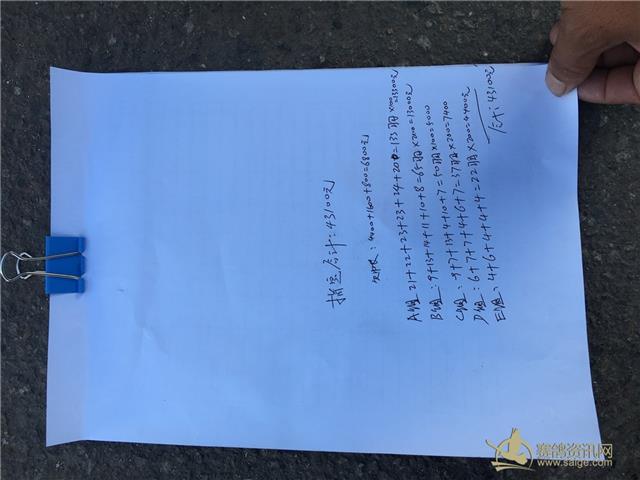 指定合计:43100元
4400+1600+800=6800元
A组 21+22+23+23+24+20=133羽×100=13300元
B组:9+13+14+11+10+8=65羽×200=13000元
C组:9+7+13+4+10+7=50羽×100=5000
D组:6+7+7+4+6+7=37羽×200=7400
E组:4+6+4+4+4=22羽×200=4400元
合计:43100元
赛鸽资讯网
www.saige.com